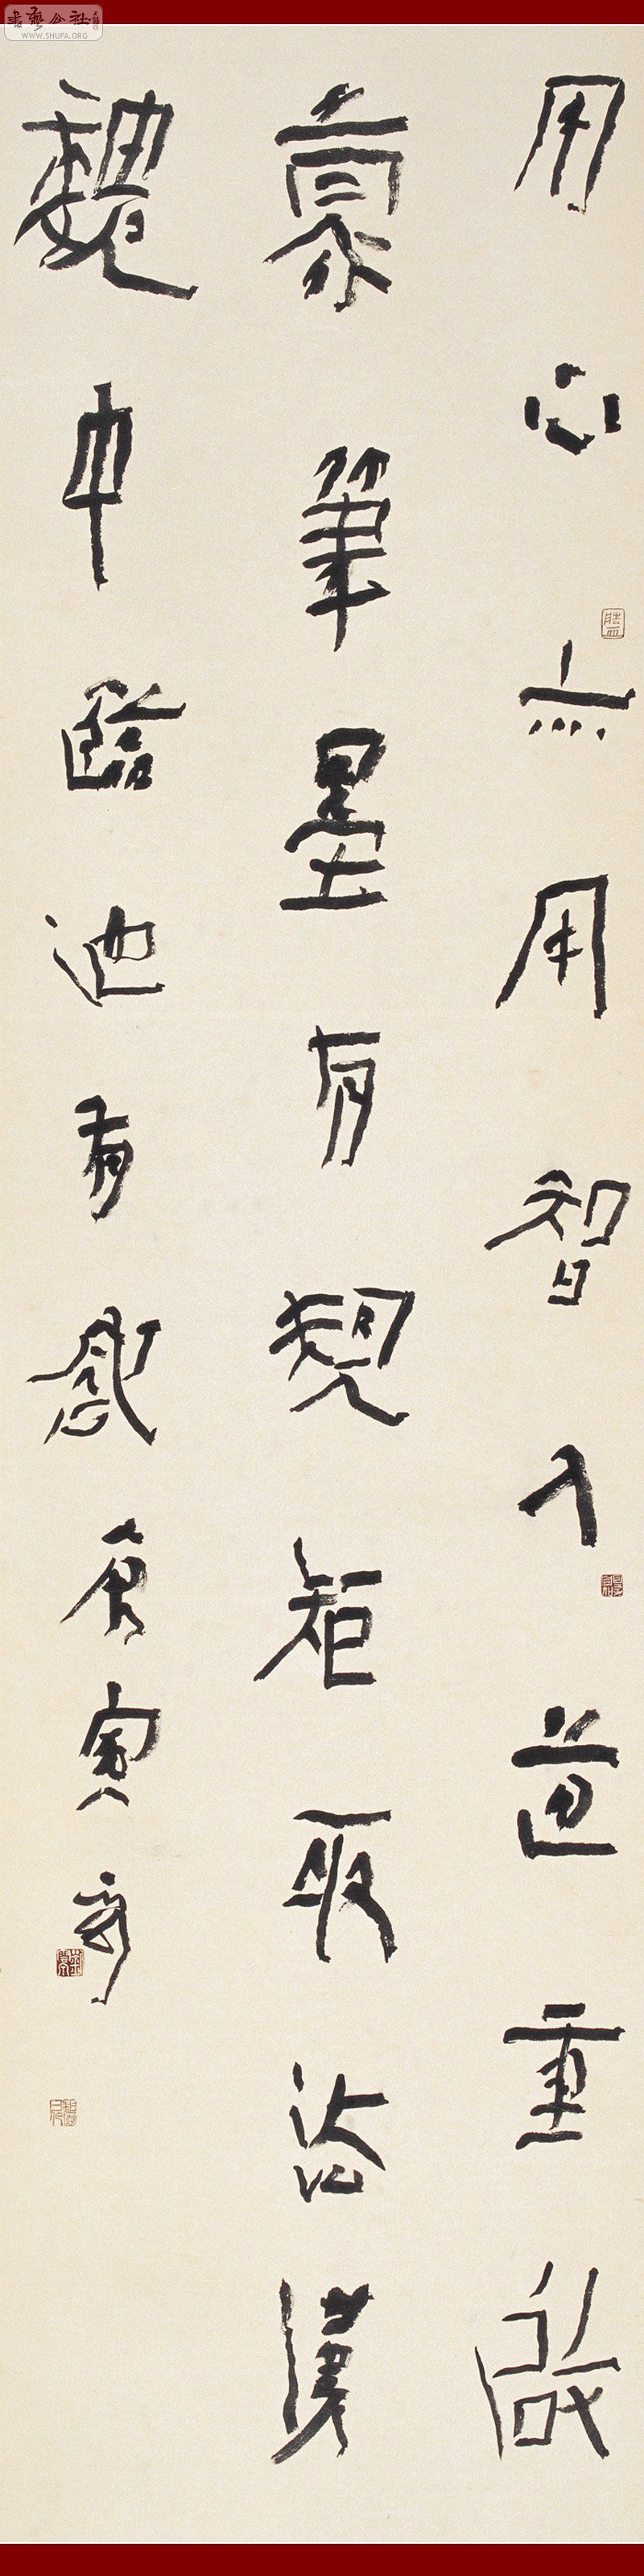 書藝公社
WWW.SHUFA.ORG
用心無用智入道重啟
蒙筆墨有規矩取法漢
魏中臨池有感庚寅